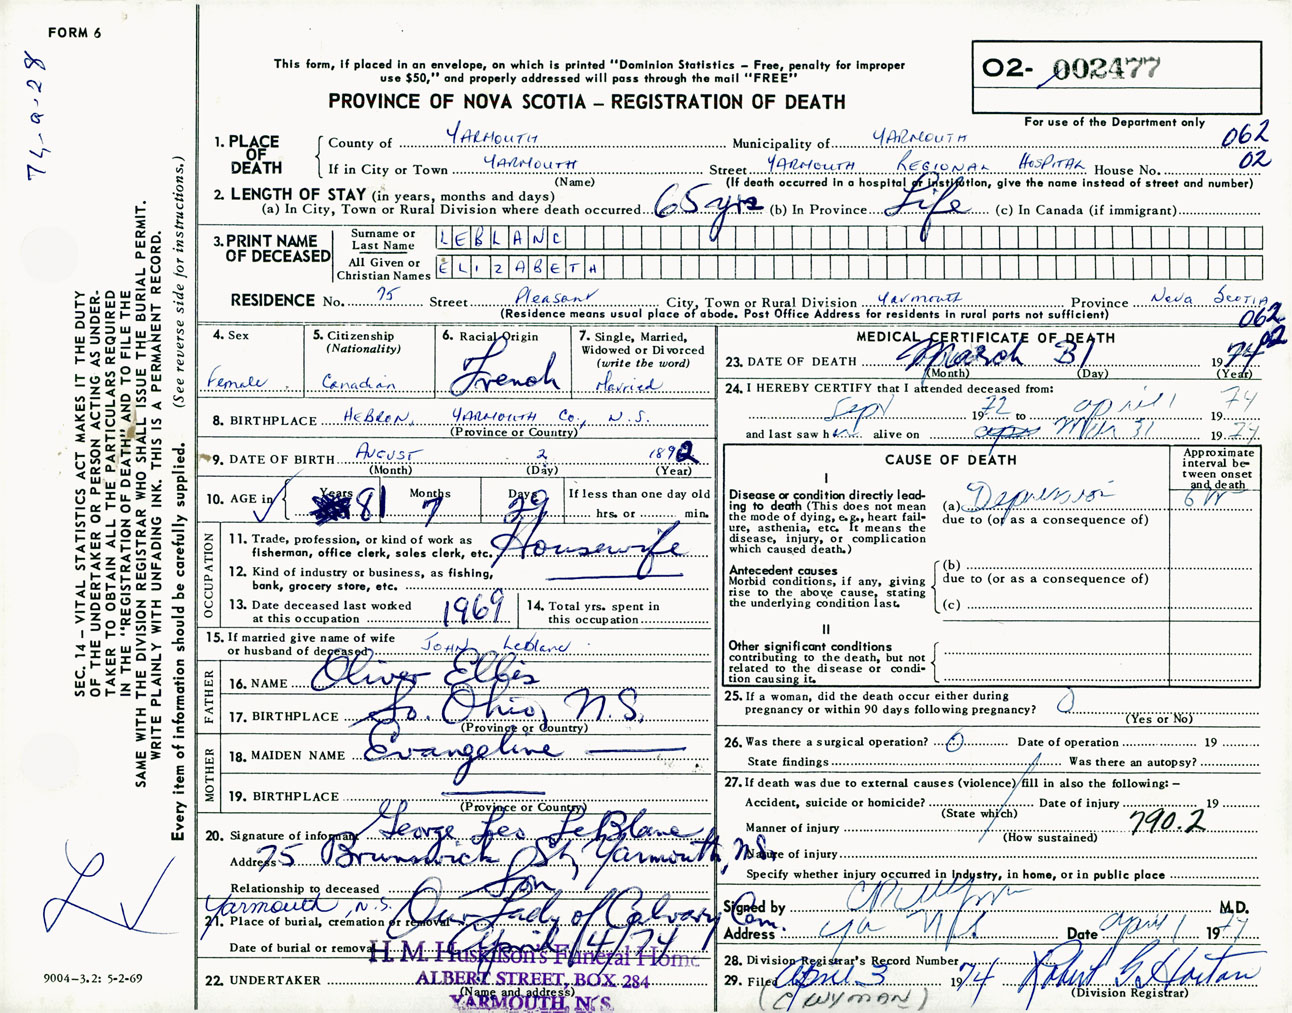 FORM 6
74-9-28
This form, if placed in an envelope, on which is printed "Dominion Statistics – Free, penalty for improper
use $50," and properly addressed will pass through the mail "FREE"
PROVINCE OF NOVA SCOTIA – REGISTRATION OF DEATH
O2- 002477
For use of the Department only
062
02
1. PLACE OF DEATH
County of YARMOUTH Municipality of YARMOUTH
If in City or Town YARMOUTH Street YARMOUTH REGIONAL HOSPITAL House No.
(Name) (If death occurred in a hospital or institution, give the name instead of street and number)
2. LENGTH OF STAY (in years, months and days)
(a) In City, Town or Rural Division where death occurred 65 yrs (b) In Province Life (c) In Canada (if immigrant)
3. PRINT NAME OF DECEASED
Surname or Last Name LEBLANC
All Given or Christian Names ELIZABETH
RESIDENCE No. 75 Street Pleasant City, Town or Rural Division Yarmouth Province Nova Scotia
(Residence means usual place of abode. Post Office Address for residents in rural parts not sufficient)
062
02
4. Sex Female
5. Citizenship (Nationality) Canadian
6. Racial Origin French
7. Single, Married, Widowed or Divorced (write the word) Married
8. BIRTHPLACE HEBRON, YARMOUTH Co., N.S.
(Province or Country)
9. DATE OF BIRTH AUGUST 2 1892
(Month) (Day) (Year)
10. AGE in Years 81 Months 7 Days 29 If less than one day old
hrs. or min.
OCCUPATION
11. Trade, profession, or kind of work as
fisherman, office clerk, sales clerk, etc. Housewife
12. Kind of industry or business, as fishing,
bank, grocery store, etc.
13. Date deceased last worked
at this occupation 1969
14. Total yrs. spent in
this occupation
15. If married give name of wife
or husband of deceased JOHN LeBlanc
FATHER
16. NAME Oliver Ellis
17. BIRTHPLACE So. Ohio, N.S.
(Province or Country)
MOTHER
18. MAIDEN NAME Evangeline
19. BIRTHPLACE
(Province or Country)
20. Signature of informant George Leo LeBlanc
Address 75 Brunswick St, Yarmouth, N.S.
Relationship to deceased Son
Yarmouth, N.S.
21. Place of burial, cremation or removal Our Lady of Calvary Cem.
Date of burial or removal April /4/74
H. M. Huskilson's Funeral Home
22. UNDERTAKER ALBERT STREET, BOX 284
(Name and address)
YARMOUTH, N.S.
MEDICAL CERTIFICATE OF DEATH
23. DATE OF DEATH March 31 1974
(Month) (Day) (Year)
24. I HEREBY CERTIFY that I attended deceased from:
Sept 1972 to april 1 1974
and last saw h alive on Mar 31 1974
CAUSE OF DEATH
Approximate interval between onset and death
I
Disease or condition directly leading to death (This does not mean the mode of dying, e.g., heart failure, asthenia, etc. It means the disease, injury, or complication which caused death.)
(a) Depression
due to (or as a consequence of)
Antecedent causes
Morbid conditions, if any, giving rise to the above cause, stating the underlying condition last.
(b)
due to (or as a consequence of)
(c)
II
Other significant conditions
contributing to the death, but not related to the disease or condition causing it.
25. If a woman, did the death occur either during
pregnancy or within 90 days following pregnancy? 0
(Yes or No)
26. Was there a surgical operation? 0 Date of operation 19
State findings Was there an autopsy?
27. If death was due to external causes (violence) fill in also the following: –
Accident, suicide or homicide? Date of injury 19
(State which)
Manner of injury 790.2
(How sustained)
Nature of injury
Specify whether injury occurred in Industry, in home, or in public place
Signed by M.D.
Address N.S. Date april 1 1974
28. Division Registrar's Record Number
29. Filed April 3 1974 Robert G. Horton
(C WYMAN) (Division Registrar)
SEC. 14 – VITAL STATISTICS ACT MAKES IT THE DUTY
OF THE UNDERTAKER OR PERSON ACTING AS UNDER-
TAKER TO OBTAIN ALL THE PARTICULARS REQUIRED
IN THE "REGISTRATION OF DEATH" AND TO FILE THE
SAME WITH THE DIVISION REGISTRAR WHO SHALL ISSUE THE BURIAL PERMIT.
WRITE PLAINLY WITH UNFADING INK. THIS IS A PERMANENT RECORD.
Every item of information should be carefully supplied. (See reverse side for instructions.)
9004–3.2: 5-2-69